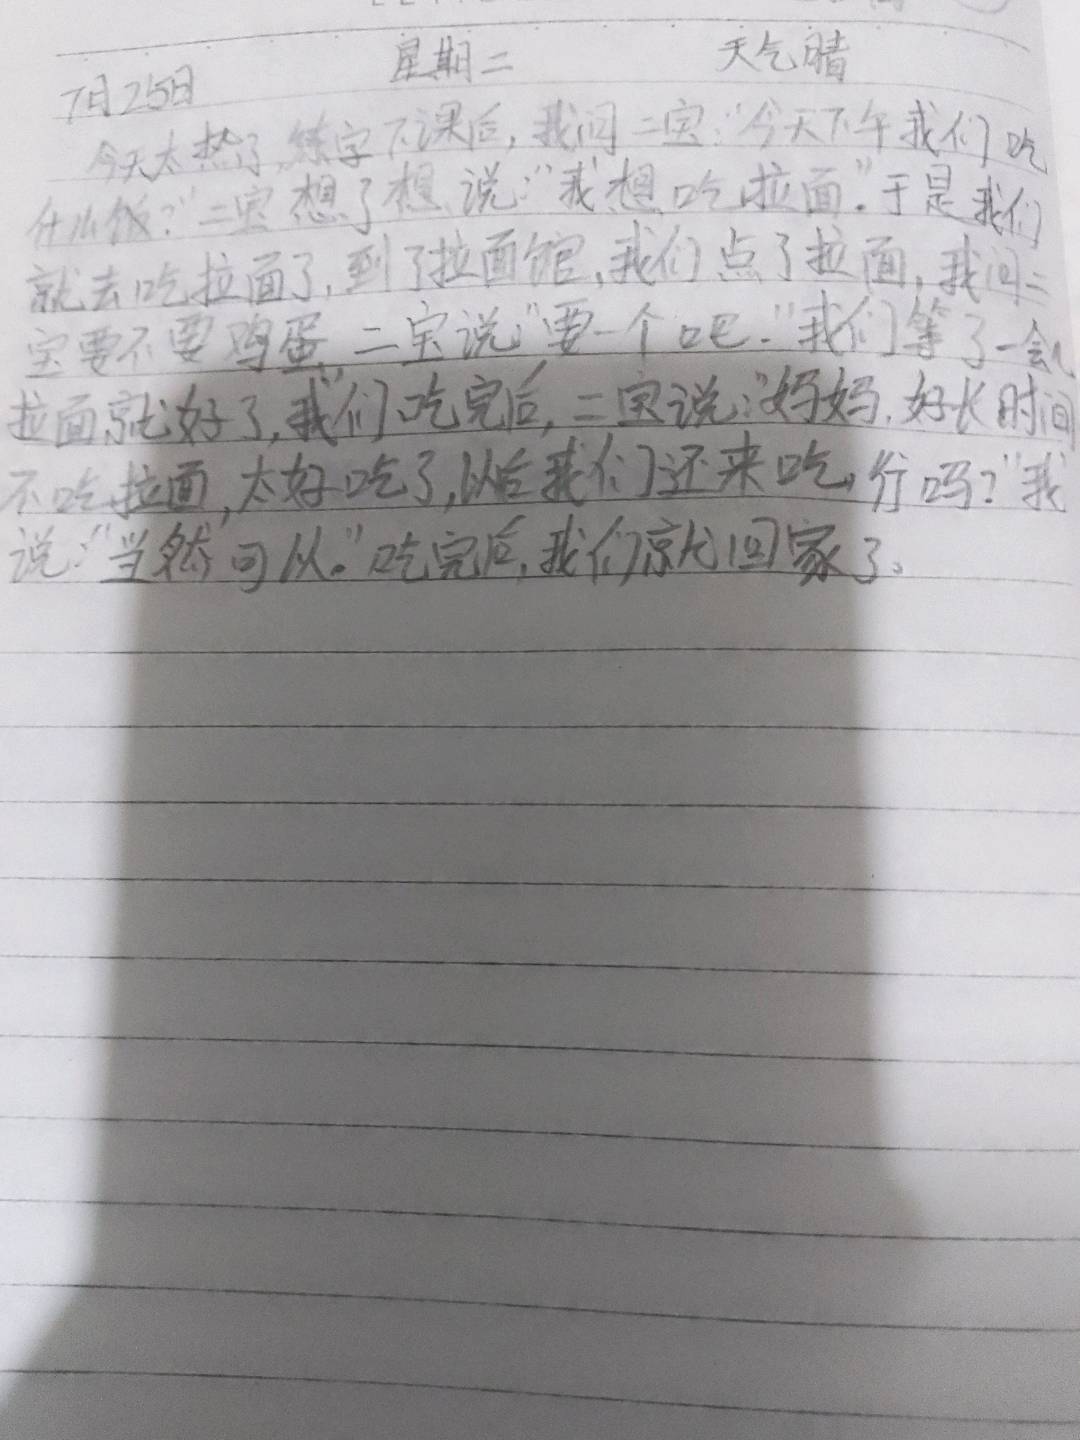 7月25日 星期二 天气晴
今天太热了,练字下课后,我问二宝:"今天下午我们吃
什么饭?"二宝想了想说:"我想吃拉面"。于是我们
就去吃拉面了,到了拉面馆,我们点了拉面,我问二
宝要不要鸡蛋,二宝说"要一个吧."我们等了一会儿
拉面就好了,我们吃完后,二宝说:"妈妈,好长时间
不吃拉面,太好吃了,以后我们还来吃,行吗?"我
说:"当然可以。"吃完后,我们就回家了。